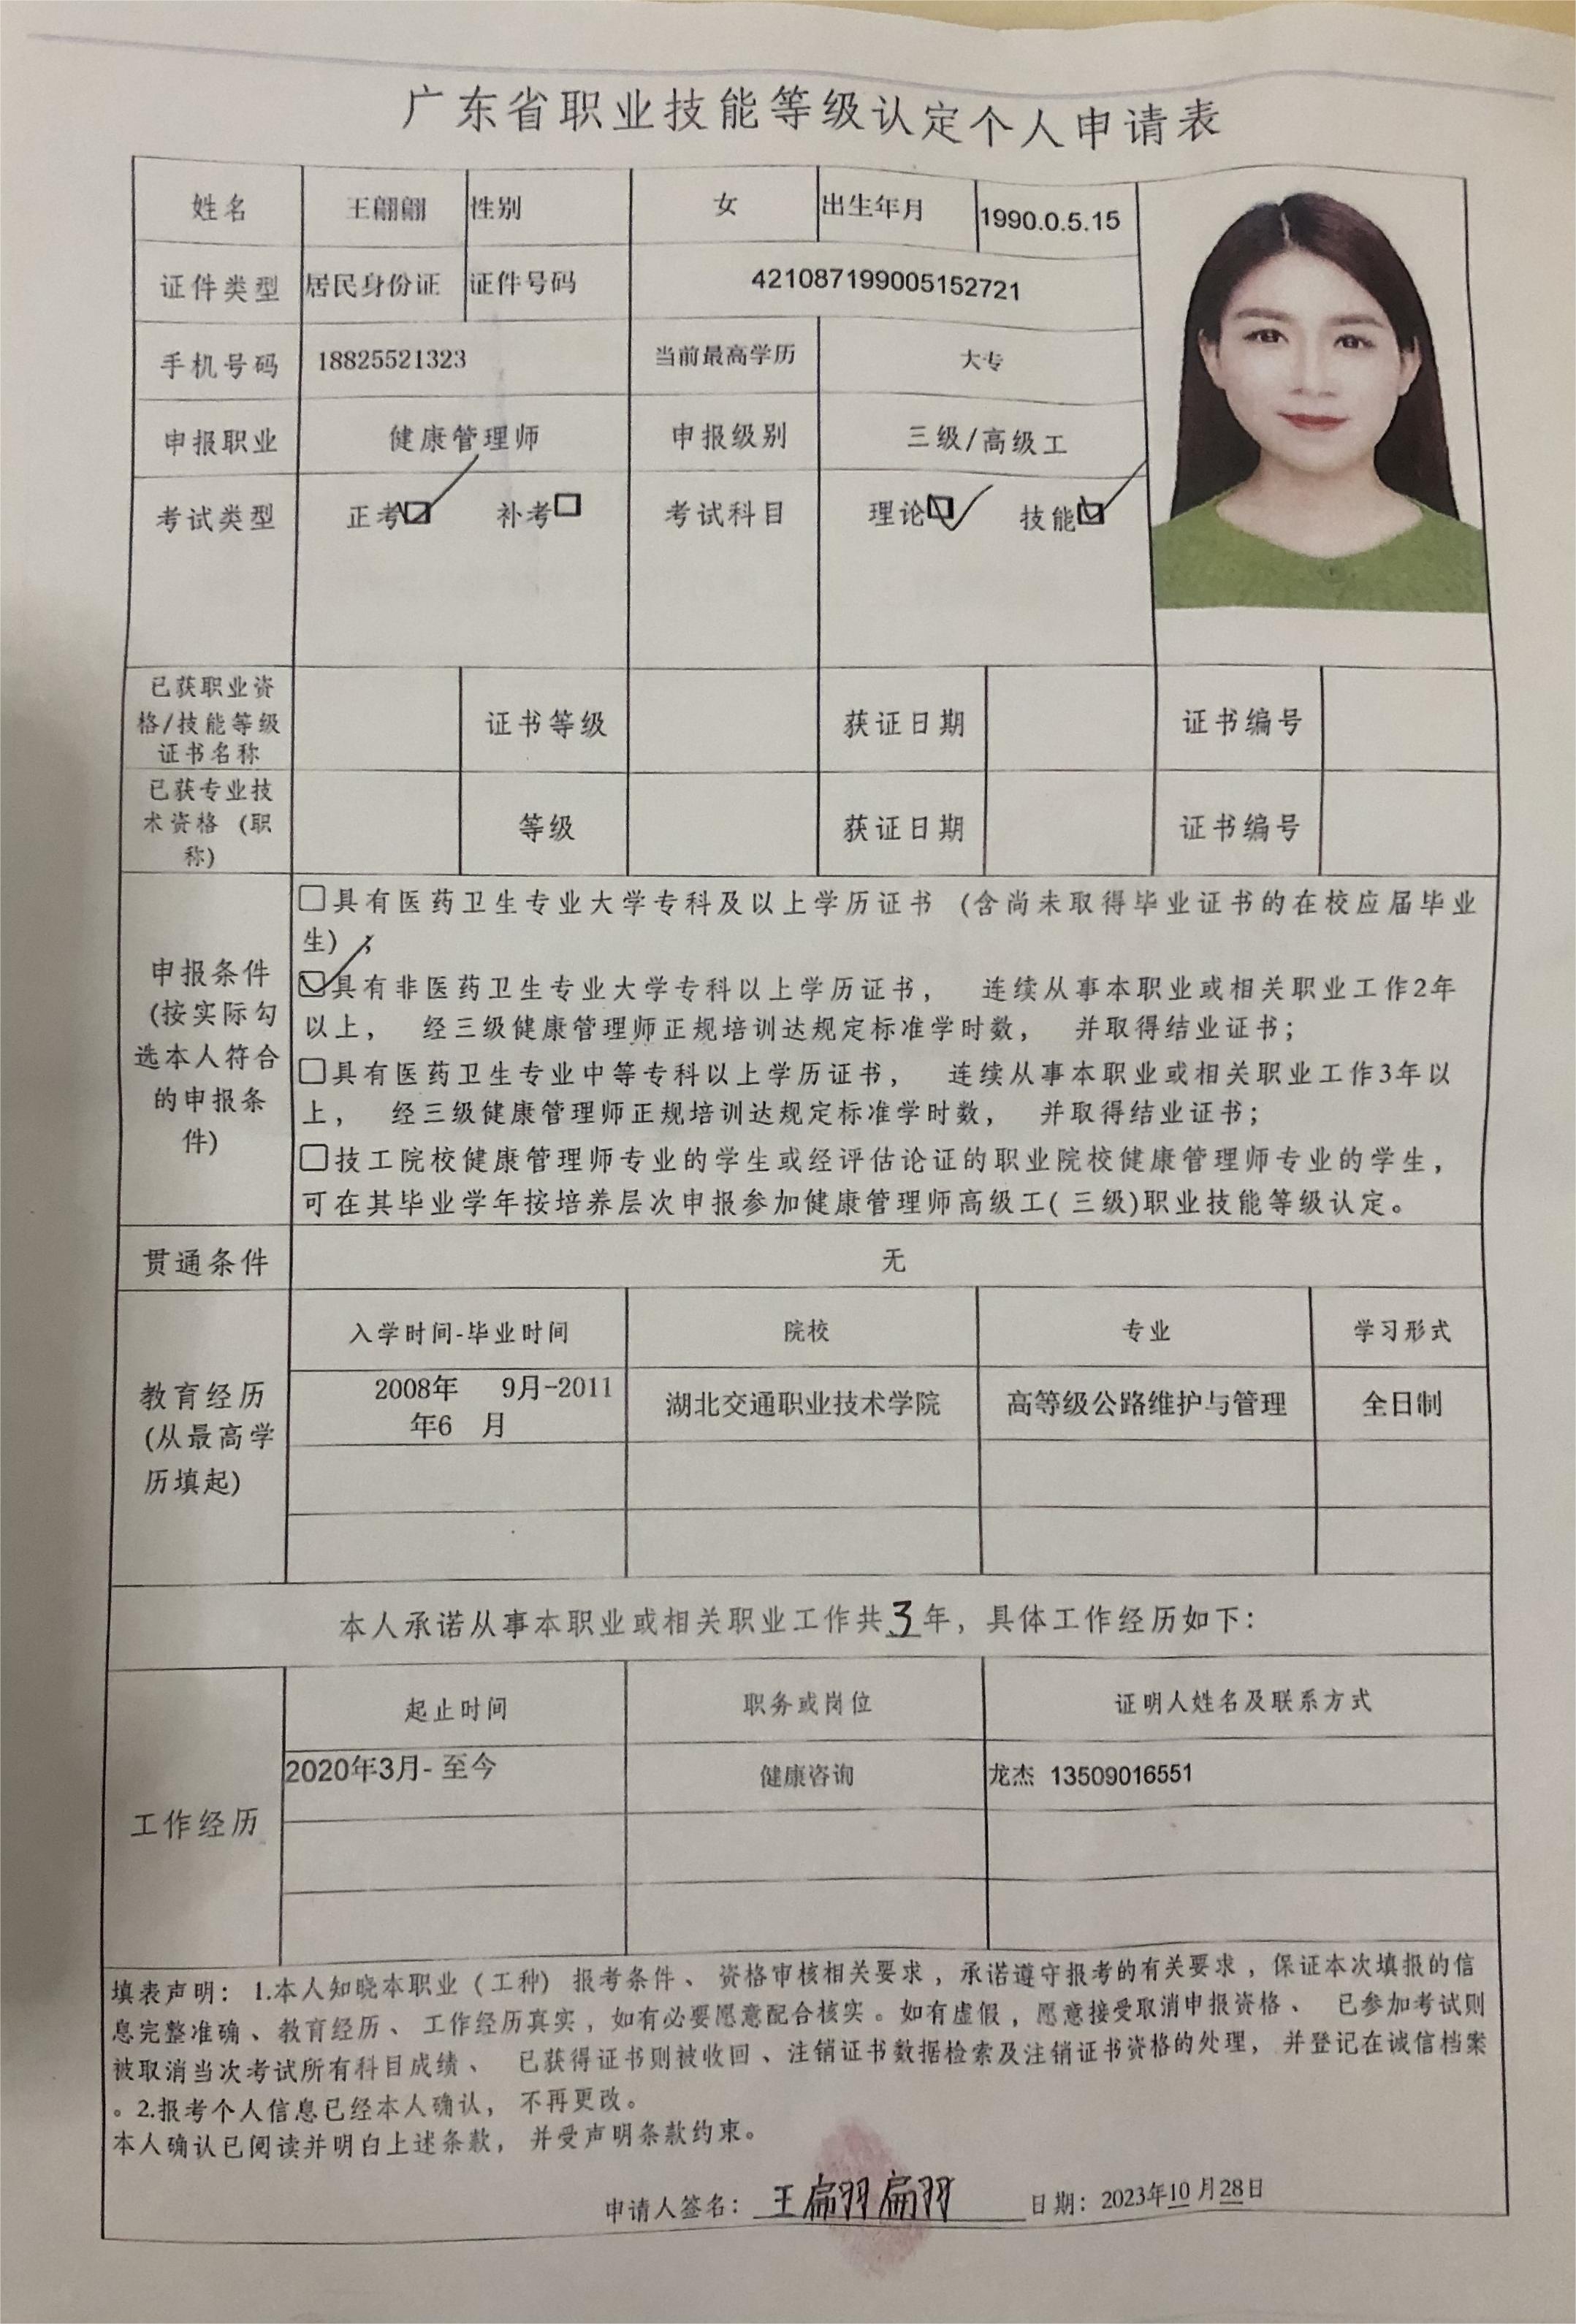 广东省职业技能等级认定个人申请表
姓名 王翩翩 性别 女 出生年月 1990.0.5.15
证件类型 居民身份证 证件号码 421087199005152721
手机号码 18825521323 当前最高学历 大专
申报职业 健康管理师 申报级别 三级/高级工
考试类型 正考☑ 补考☐ 考试科目 理论☑ 技能☑
已获职业资
格/技能等级 证书等级 获证日期 证书编号
证书名称
已获专业技
术资格（职 等级 获证日期 证书编号
称）
申报条件
(按实际勾
选本人符合
的申报条
件)
☐具有医药卫生专业大学专科及以上学历证书（含尚未取得毕业证书的在校应届毕业
生）；
☑具有非医药卫生专业大学专科以上学历证书， 连续从事本职业或相关职业工作2年
以上， 经三级健康管理师正规培训达规定标准学时数， 并取得结业证书；
☐具有医药卫生专业中等专科以上学历证书， 连续从事本职业或相关职业工作3年以
上， 经三级健康管理师正规培训达规定标准学时数， 并取得结业证书；
☐技工院校健康管理师专业的学生或经评估论证的职业院校健康管理师专业的学生，
可在其毕业学年按培养层次申报参加健康管理师高级工(三级)职业技能等级认定。
贯通条件 无
教育经历
(从最高学
历填起)
入学时间-毕业时间 院校 专业 学习形式
2008年 9月-2011
年6 月 湖北交通职业技术学院 高等级公路维护与管理 全日制
本人承诺从事本职业或相关职业工作共3年，具体工作经历如下：
工作经历
起止时间 职务或岗位 证明人姓名及联系方式
2020年3月- 至今 健康咨询 龙杰 13509016551
填表声明： 1.本人知晓本职业（工种）报考条件、资格审核相关要求，承诺遵守报考的有关要求，保证本次填报的信
息完整准确、教育经历、工作经历真实，如有必要愿意配合核实。如有虚假，愿意接受取消申报资格、 已参加考试则
被取消当次考试所有科目成绩、 已获得证书则被收回、注销证书数据检索及注销证书资格的处理，并登记在诚信档案
。2.报考个人信息已经本人确认， 不再更改。
本人确认已阅读并明白上述条款， 并受声明条款约束。
申请人签名： 王翩翩 日期：2023年10月28日